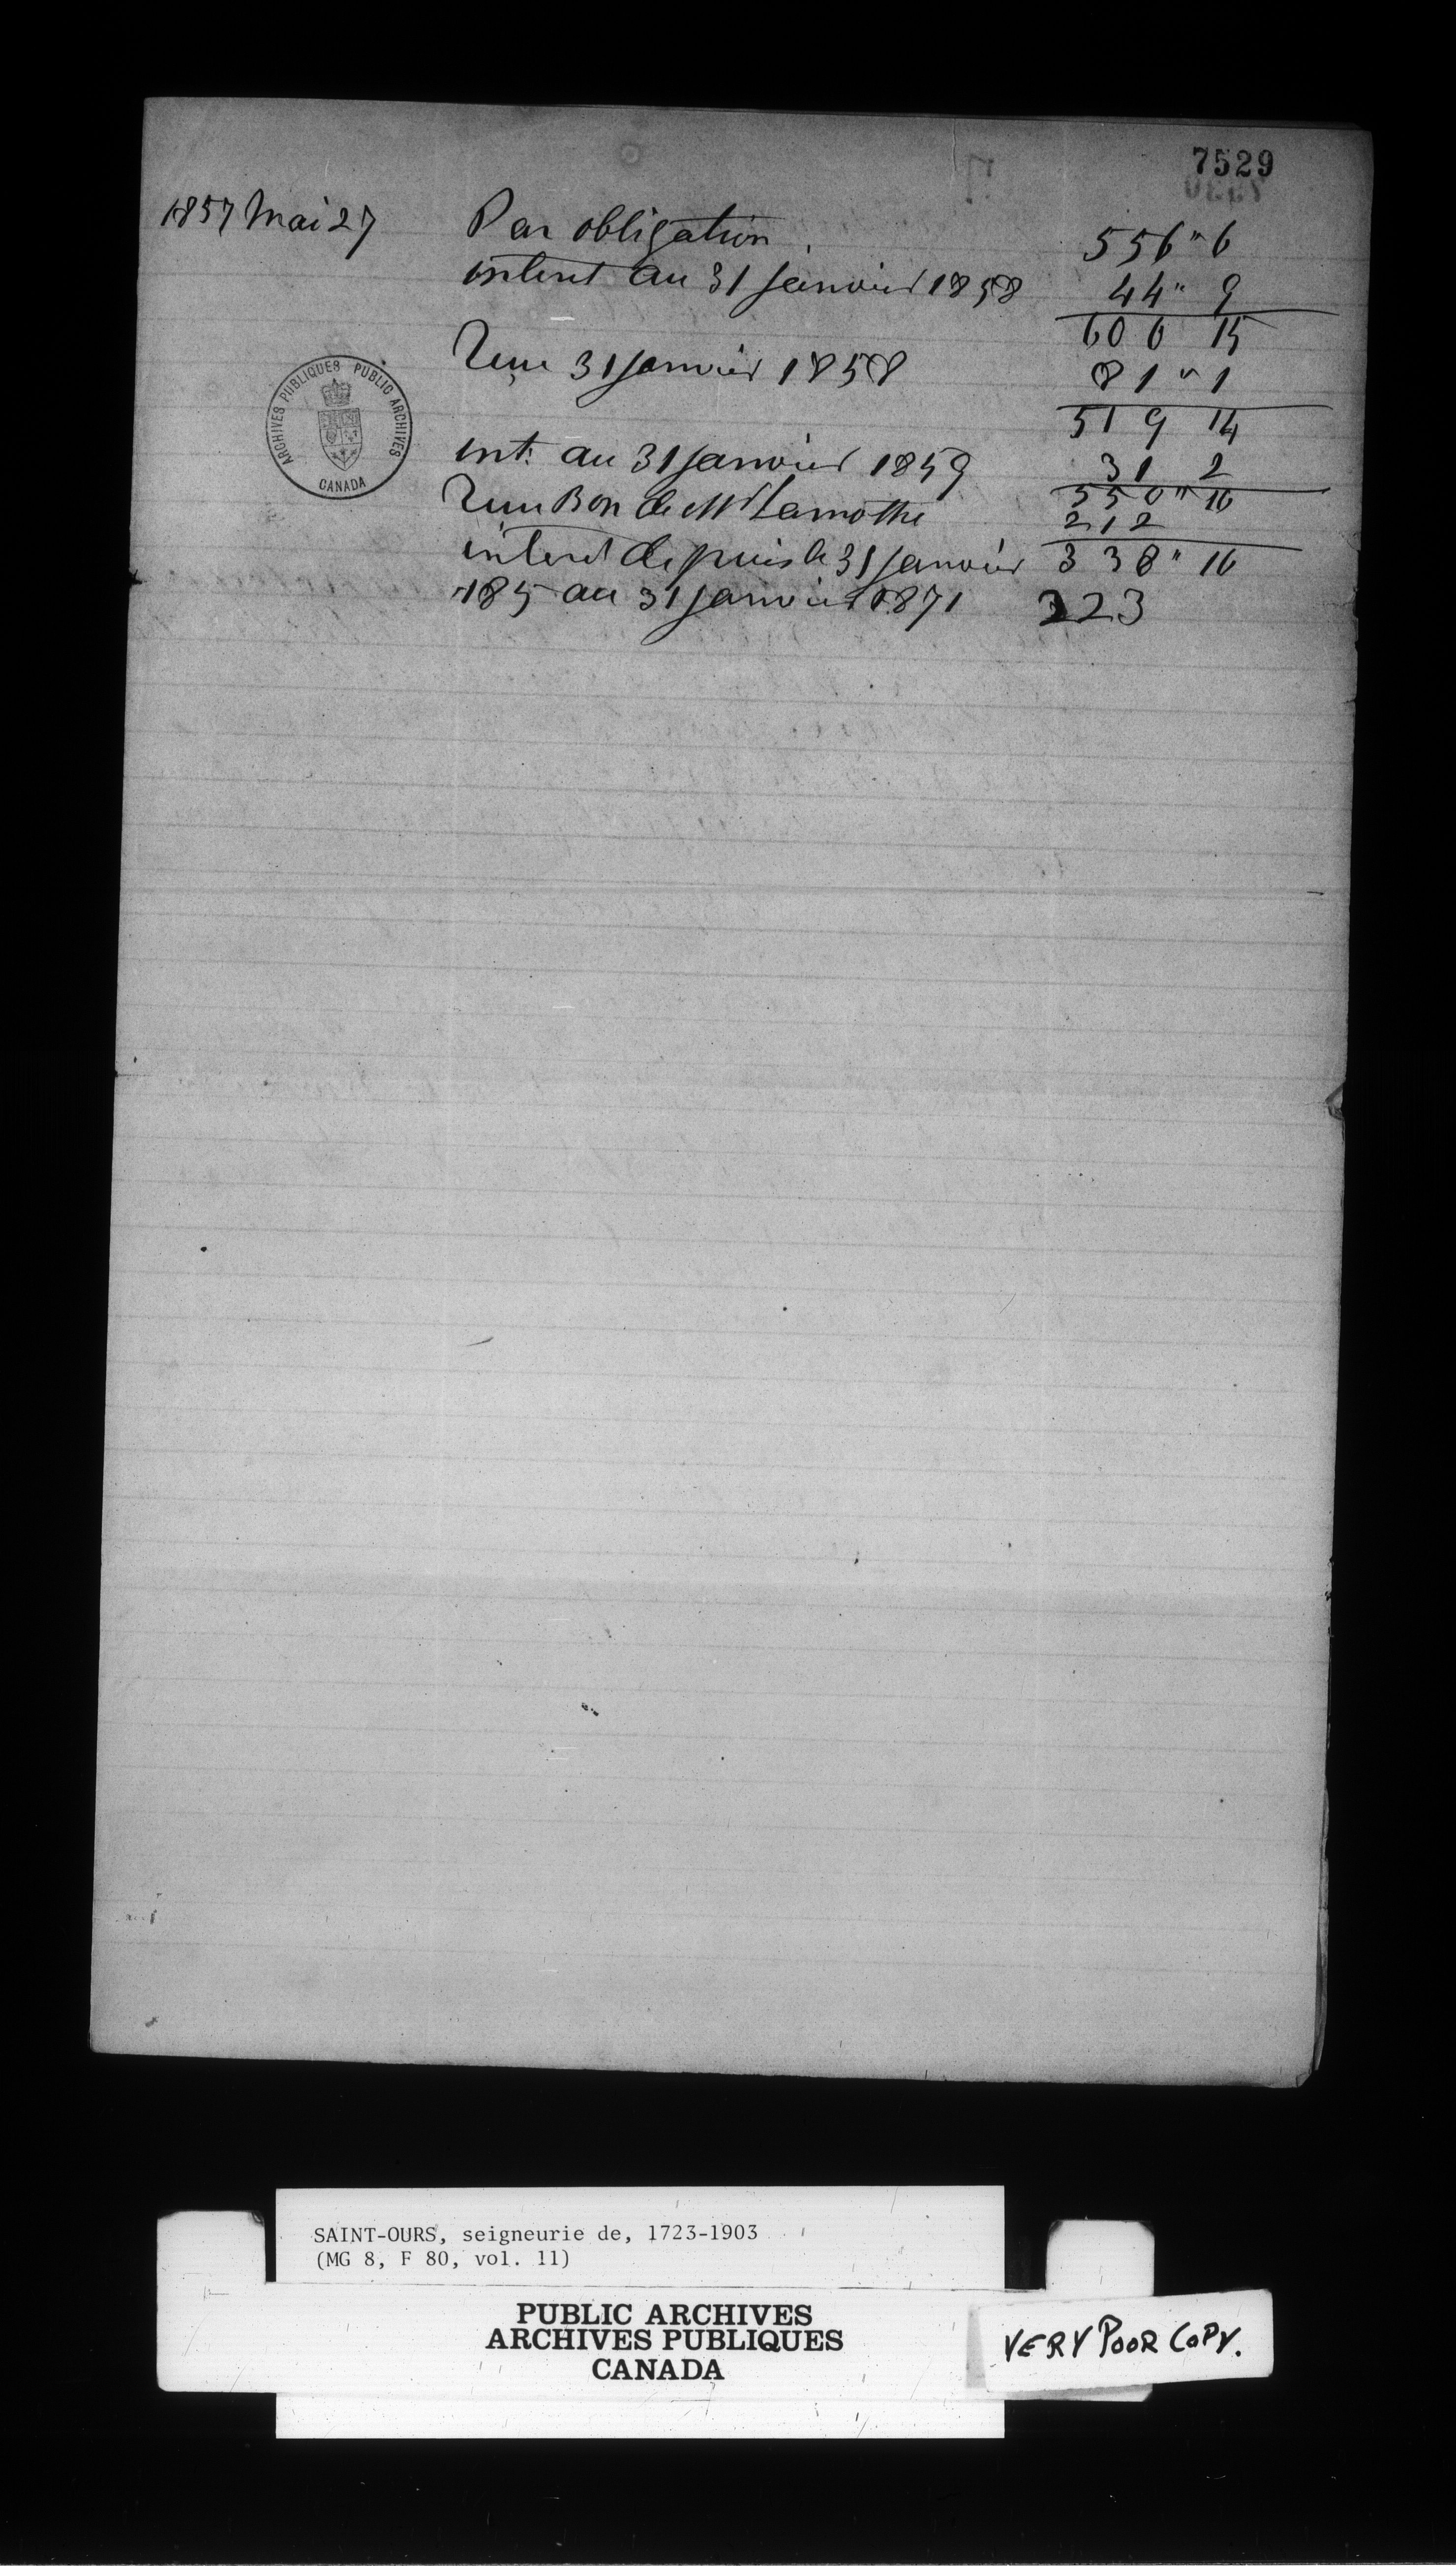 7529
1857 Mai 27 Par obligation 556 " 6
interet au 31 janvier 1858 44 " 9
600 15
Reçu 31 janvier 1858 81 " 1
519 14
int: au 31 janvier 1859 31 2
550 " 16
Reçu Bon de Mr Lamothe 212
interet depuis le 31 janvier 338 " 16
185 au 31 janvier 1871 223
ARCHIVES PUBLIQUES PUBLIC ARCHIVES
CANADA
SAINT-OURS, seigneurie de, 1723-1903
(MG 8, F 80, vol. 11)
PUBLIC ARCHIVES
ARCHIVES PUBLIQUES
CANADA
VERY POOR COPY.